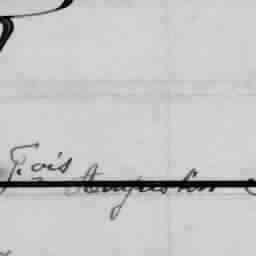 F. ois Augustin